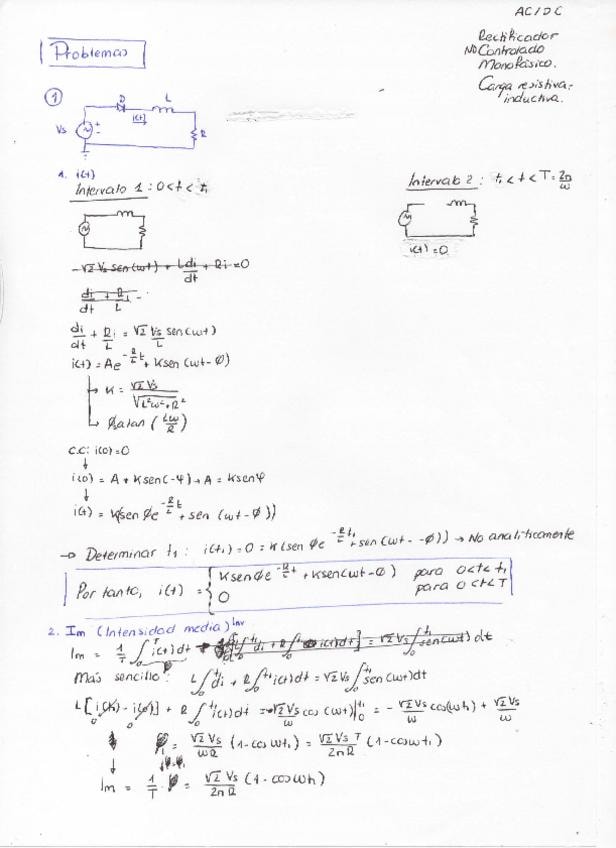 AC/DC
Problemas
Rectificador
No Controlado
Monofásico.
Carga resistiva-
inductiva.
①
D L
i(t)
Vs + - R
1. i(t)
Intervalo 1: 0<t<t₁
Intervalo 2: t₁<t<T=2π/ω
i(t)=0
-√2 Vs sen(ωt) + L di/dt + Ri=0
di/dt + R/L i =
di/dt + R/L i = √2 Vs/L sen(ωt)
i(t) = Ae^(-R/L t) + K sen(ωt-φ)
→ K = √2 Vs/√(L²ω²+R²)
→ φ atan (Lω/R)
C.C: i(0)=0
↓
i(0) = A + K sen(-φ) → A = K senφ
↓
i(t) = K(sen φe^(-R/L t) + sen (ωt-φ))
→ Determinar t₁: i(t₁)=0 = K(sen φe^(-R/L t₁) + sen(ωt--φ)) → No analíticamente
Por tanto, i(t) = { K senφe^(-R/L t) + K sen(ωt-φ) para 0<t<t₁
0 para 0<t<T
2. Im (Intensidad media)
Im = 1/T ∫₀ᵀ i(t)dt
Más sencillo: L∫₀^t₁ di + R∫₀^t₁ i(t)dt = √2 Vs ∫₀^t₁ sen(ωt)dt
L[i(t₁)-i(0)] + R ∫₀^t₁ i(t)dt = -√2 Vs/ω cos(ωt)|₀^t₁ = -√2 Vs/ω cos(ωt₁) + √2 Vs/ω
= √2 Vs/ωR (1-cos ωt₁) = √2 Vs T/2πR (1-cosωt₁)
↓
Im = 1/T · = √2 Vs/2πR (1-cosωt₁)